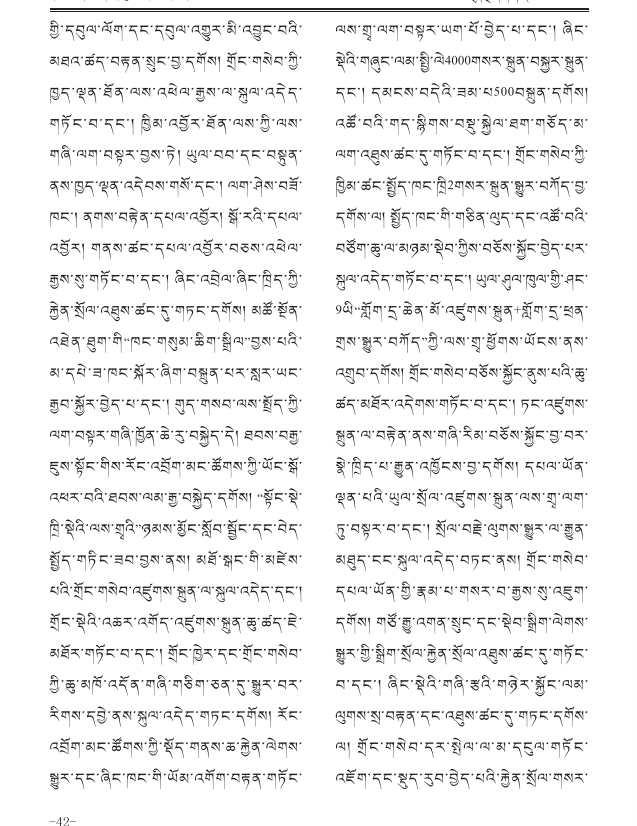 གྱི་དབུལ་ལོག་དང་དབུལ་འགྱུར་མི་འབྱུང་བའི་
མཐའ་ཚད་བརྟན་སྲུང་བྱ་དགོས། གྲོང་གསེབ་ཀྱི་
ཁྱད་ལྡན་ཐོན་ལས་འཕེལ་རྒྱས་ལ་སྐུལ་འདེད་
གཏོང་བ་དང་། ཁྱིམ་འབྱོར་ཐོན་ལས་ཀྱི་ལས་
གཞི་ལག་བསྟར་བྱས་ཏེ། ཡུལ་བབ་དང་བསྟུན་
ནས་ཁྱད་ལྡན་འདེབས་གསོ་དང་། ལག་ཤེས་བཟོ་
ཁང་། ནགས་བརྟེན་དཔལ་འབྱོར། སྒོ་རའི་དཔལ་
འབྱོར། གནས་ཚང་དཔལ་འབྱོར་བཅས་འཕེལ་
རྒྱས་སུ་གཏོང་བ་དང་། ཞིང་འབྲེལ་ཞིང་ཁྲིད་ཀྱི་
རྐྱེན་སྲོལ་འཐུས་ཚང་དུ་གཏང་དགོས། མཚོ་སྔོན་
འཐེན་ཐུག་གི“ཁང་གསུམ་ཆིག་སྒྲིལ”བྱས་པའི་
མ་དཔེ་ཟ་ཁང་སྐོར་ཞིག་བསྐྲུན་པར་སླར་ཡང་
རྒྱབ་སྐྱོར་བྱེད་པ་དང་། གུད་གསབ་ལས་སྤྲོད་ཀྱི་
ལག་བསྟར་གཞི་ཁྱོན་ཆེ་རུ་བསྐྱེད་དེ། ཐབས་བརྒྱ་
ཇུས་སྟོང་གིས་རོང་འབྲོག་མང་ཚོགས་ཀྱི་ཡོང་སྒོ་
འཕར་བའི་ཐབས་ལམ་རྒྱ་བསྐྱེད་དགོས། “སྟོང་སྡེ་
ཁྲི་སྡེའི་ལས་གྲྭའི”ཉམས་མྱོང་སློབ་སྦྱོང་དང་བེད་
སྤྱོད་གཏིང་ཟབ་བྱས་ནས། མཐོ་སྒང་གི་མཛེས་
པའི་གྲོང་གསེབ་འཛུགས་སྐྲུན་ལ་སྐུལ་འདེད་དང་།
གྲོང་སྡེའི་འཆར་འགོད་འཛུགས་སྐྲུན་ཆུ་ཚད་ཇེ་
མཐོར་གཏོང་བ་དང་། གྲོང་ཁྱེར་དང་གྲོང་གསེབ་
ཀྱི་ཆུ་མཁོ་འདོན་གཞི་གཅིག་ཅན་དུ་སྒྱུར་བར་
རིགས་དབྱེ་ནས་སྐུལ་འདེད་གཏང་དགོས། རོང་
འབྲོག་མང་ཚོགས་ཀྱི་སྡོད་གནས་ཆ་རྐྱེན་ལེགས་
སྒྱུར་དང་ཞིང་ཁང་གི་ཡོམ་འགོག་བརྟན་གཏོང་
ལས་གྲྭ་ལག་བསྟར་ཡག་པོ་བྱེད་པ་དང་། ཞིང་
སྡེའི་གཞུང་ལམ་སྤྱི་ལེ4000གསར་སྐྲུན་བསྐྱར་སྐྲུན་
དང་། དམངས་བདེའི་ཟམ་པ500བསྐྲུན་དགོས།
འཚོ་བའི་གད་སྙིགས་བསྡུ་སྐྱེལ་ཐག་གཅོད་མ་
ལག་འཐུས་ཚང་དུ་གཏོང་བ་དང་། གྲོང་གསེབ་ཀྱི་
ཁྱིམ་ཚང་སྤྱོད་ཁང་ཁྲི2གསར་སྐྲུན་སྒྱུར་བཀོད་བྱ་
དགོས་ལ། སྤྱོད་ཁང་གི་གཅིན་ལུད་དང་འཚོ་བའི་
བཙོག་ཆུ་ལ་མཉམ་སྡེབ་ཀྱིས་བཅོས་སྐྱོང་བྱེད་པར་
སྐུལ་འདེད་གཏོང་བ་དང་། ཡུལ་ཤུལ་ཁུལ་གྱི་ཤང་
9ཡི“གློག་དྲ་ཆེན་མོ་འཛུགས་སྐྲུན+གློག་དྲ་ཕྲན་
གྲས་སྒྱུར་བཀོད”ཀྱི་ལས་གྲྭ་ཕྱོགས་ཡོངས་ནས་
འགྲུབ་དགོས། གྲོང་གསེབ་བཅོས་སྐྱོང་ནུས་པའི་ཆུ་
ཚད་མཐོར་འདེགས་གཏོང་བ་དང་། ཏང་འཛུགས་
སྐྲུན་ལ་བརྟེན་ནས་གཞི་རིམ་བཅོས་སྐྱོང་བྱ་བར་
སྣེ་ཁྲིད་པ་རྒྱུན་འཁྱོངས་བྱ་དགོས། དཔལ་ཡོན་
ལྡན་པའི་ཡུལ་སྲོལ་འཛུགས་སྐྲུན་ལས་གྲྭ་ལག་
ཏུ་བསྟར་བ་དང་། སྲོལ་བརྗེ་ལུགས་སྒྱུར་ལ་རྒྱུན་
མཐུད་ངང་སྐུལ་འདེད་བཏང་ནས། གྲོང་གསེབ་
དཔལ་ཡོན་གྱི་རྣམ་པ་གསར་བ་རྒྱས་སུ་འཇུག་
དགོས། གཙོ་རྒྱུ་འགན་སྲུང་དང་སྡེབ་སྒྲིག་ལེགས་
སྒྱུར་གྱི་སྒྲིག་སྲོལ་རྐྱེན་སྲོལ་འཐུས་ཚང་དུ་གཏོང་
བ་དང་། ཞིང་སྡེའི་གཞི་རྩའི་གཉེར་སྐྱོང་ལམ་
ལུགས་སྲ་བརྟན་དང་འཐུས་ཚང་དུ་གཏོང་དགོས་
ལ། གྲོང་གསེབ་དར་སྤེལ་ལ་མ་དངུལ་གཏོང་
འཇོག་དང་སྡུད་རུབ་བྱེད་པའི་རྐྱེན་སྲོལ་གསར་
-42-